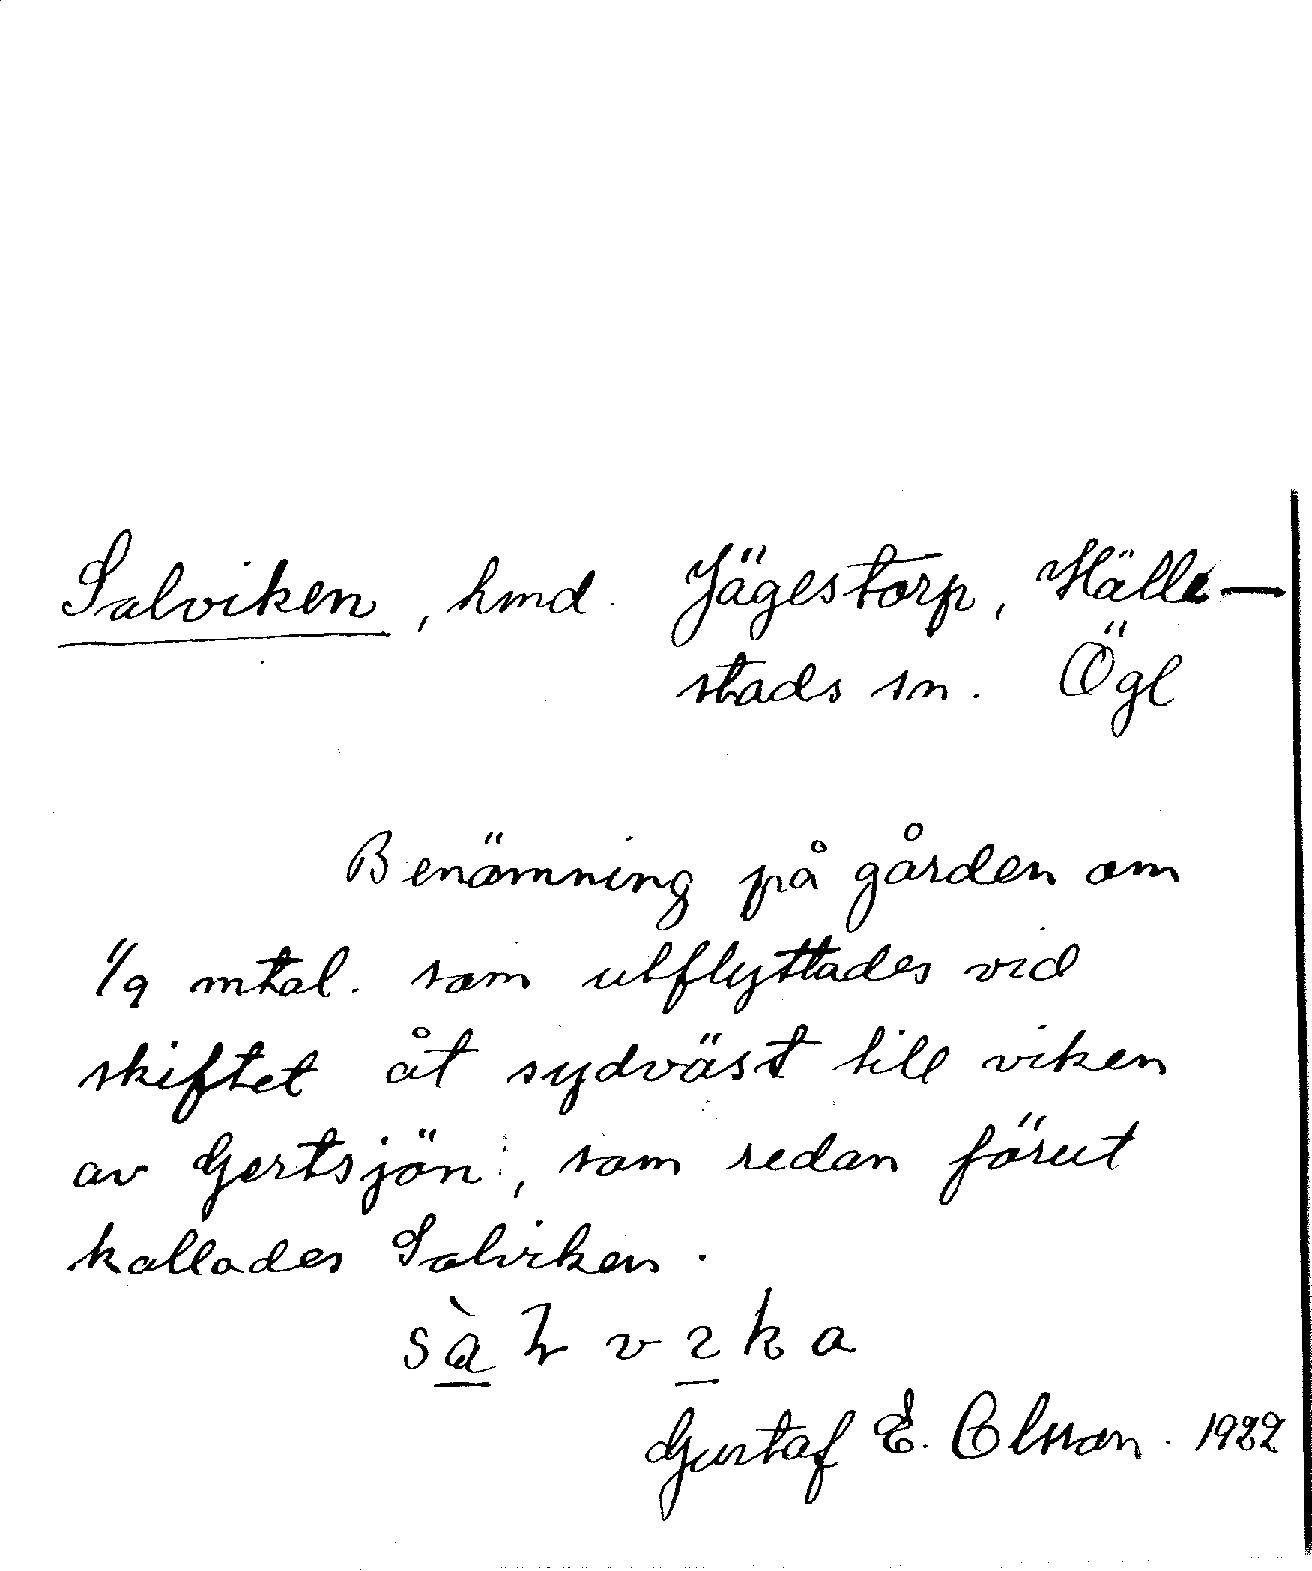 Salviken, hmd. Jägestorp, Hälle-
stads sn. Ögl
Benämning på gården om
1/9 mtal. som utflyttades vid
skiftet åt sydväst till viken
av Gertsjön, som redan förut
kallades Salviken.
Gustaf E. Olsson. 1922